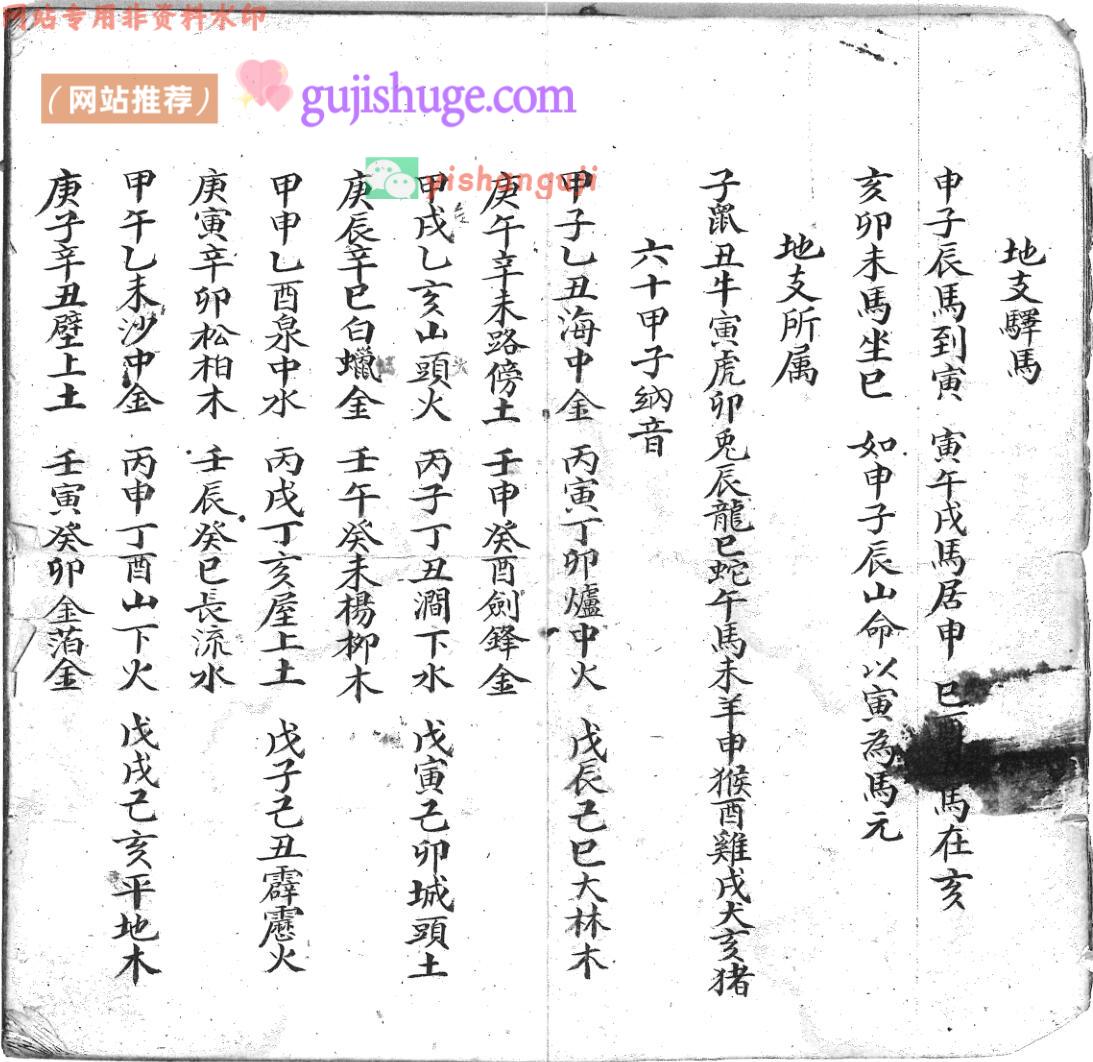 网站专用非资料水印
（网站推荐）
gujishuge.com
yishanguji
地支驛馬
申子辰馬到寅 寅午戌馬居申 巳 馬在亥
亥卯未馬坐巳 如申子辰山命以寅為馬元
地支所属
子鼠丑牛寅虎卯兎辰龍巳蛇午馬未羊申猴酉雞戌犬亥猪
六十甲子納音
甲子乙丑海中金 丙寅丁卯爐中火 戊辰己巳大林木
庚午辛未路傍土 壬申癸酉劍鋒金
甲戌乙亥山頭火 丙子丁丑澗下水 戊寅己卯城頭土
庚辰辛巳白蠟金 壬午癸未楊柳木
甲申乙酉泉中水 丙戌丁亥屋上土 戊子己丑霹靂火
庚寅辛卯松柏木 壬辰癸巳長流水
甲午乙未沙中金 丙申丁酉山下火 戊戌己亥平地木
庚子辛丑壁上土 壬寅癸卯金箔金